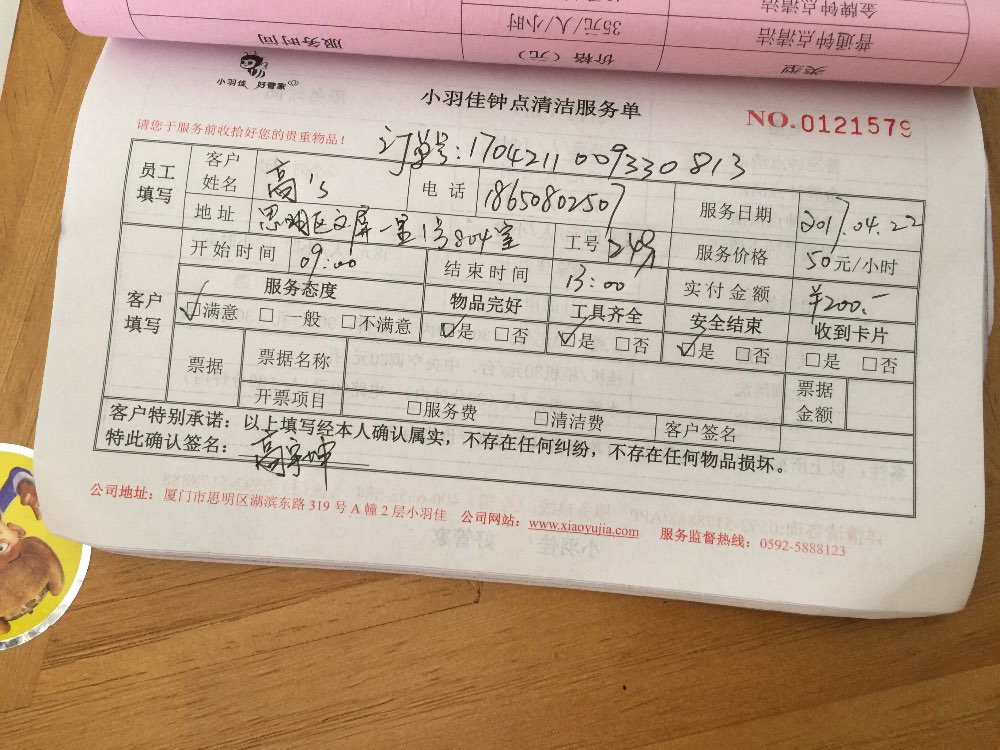 金牌钟点清洁
普通钟点清洁 35元/人/小时
类型 价格（元） 服务时间
小羽佳 好管家
小羽佳钟点清洁服务单
NO.0121579
请您于服务前收拾好您的贵重物品！
订单号:1704211009330813
员工填写 客户姓名 高's 电话 18650802507 服务日期 2017.04.22
地址 思明区文屏一里1号804室 工号 249 服务价格 50元/小时
开始时间 09:00 结束时间 13:00 实付金额 ¥200.-
客户填写 服务态度 物品完好 工具齐全 安全结束 收到卡片
☑满意 □一般 □不满意 ☑是 □否 ☑是 □否 ☑是 □否 □是 □否
票据 票据名称 票据金额
开票项目 □服务费 □清洁费 客户签名
客户特别承诺：以上填写经本人确认属实，不存在任何纠纷，不存在任何物品损坏。
特此确认签名：
公司地址：厦门市思明区湖滨东路 319 号 A 幢 2 层小羽佳 公司网站：www.xiaoyujia.com 服务监督热线：0592-5888123